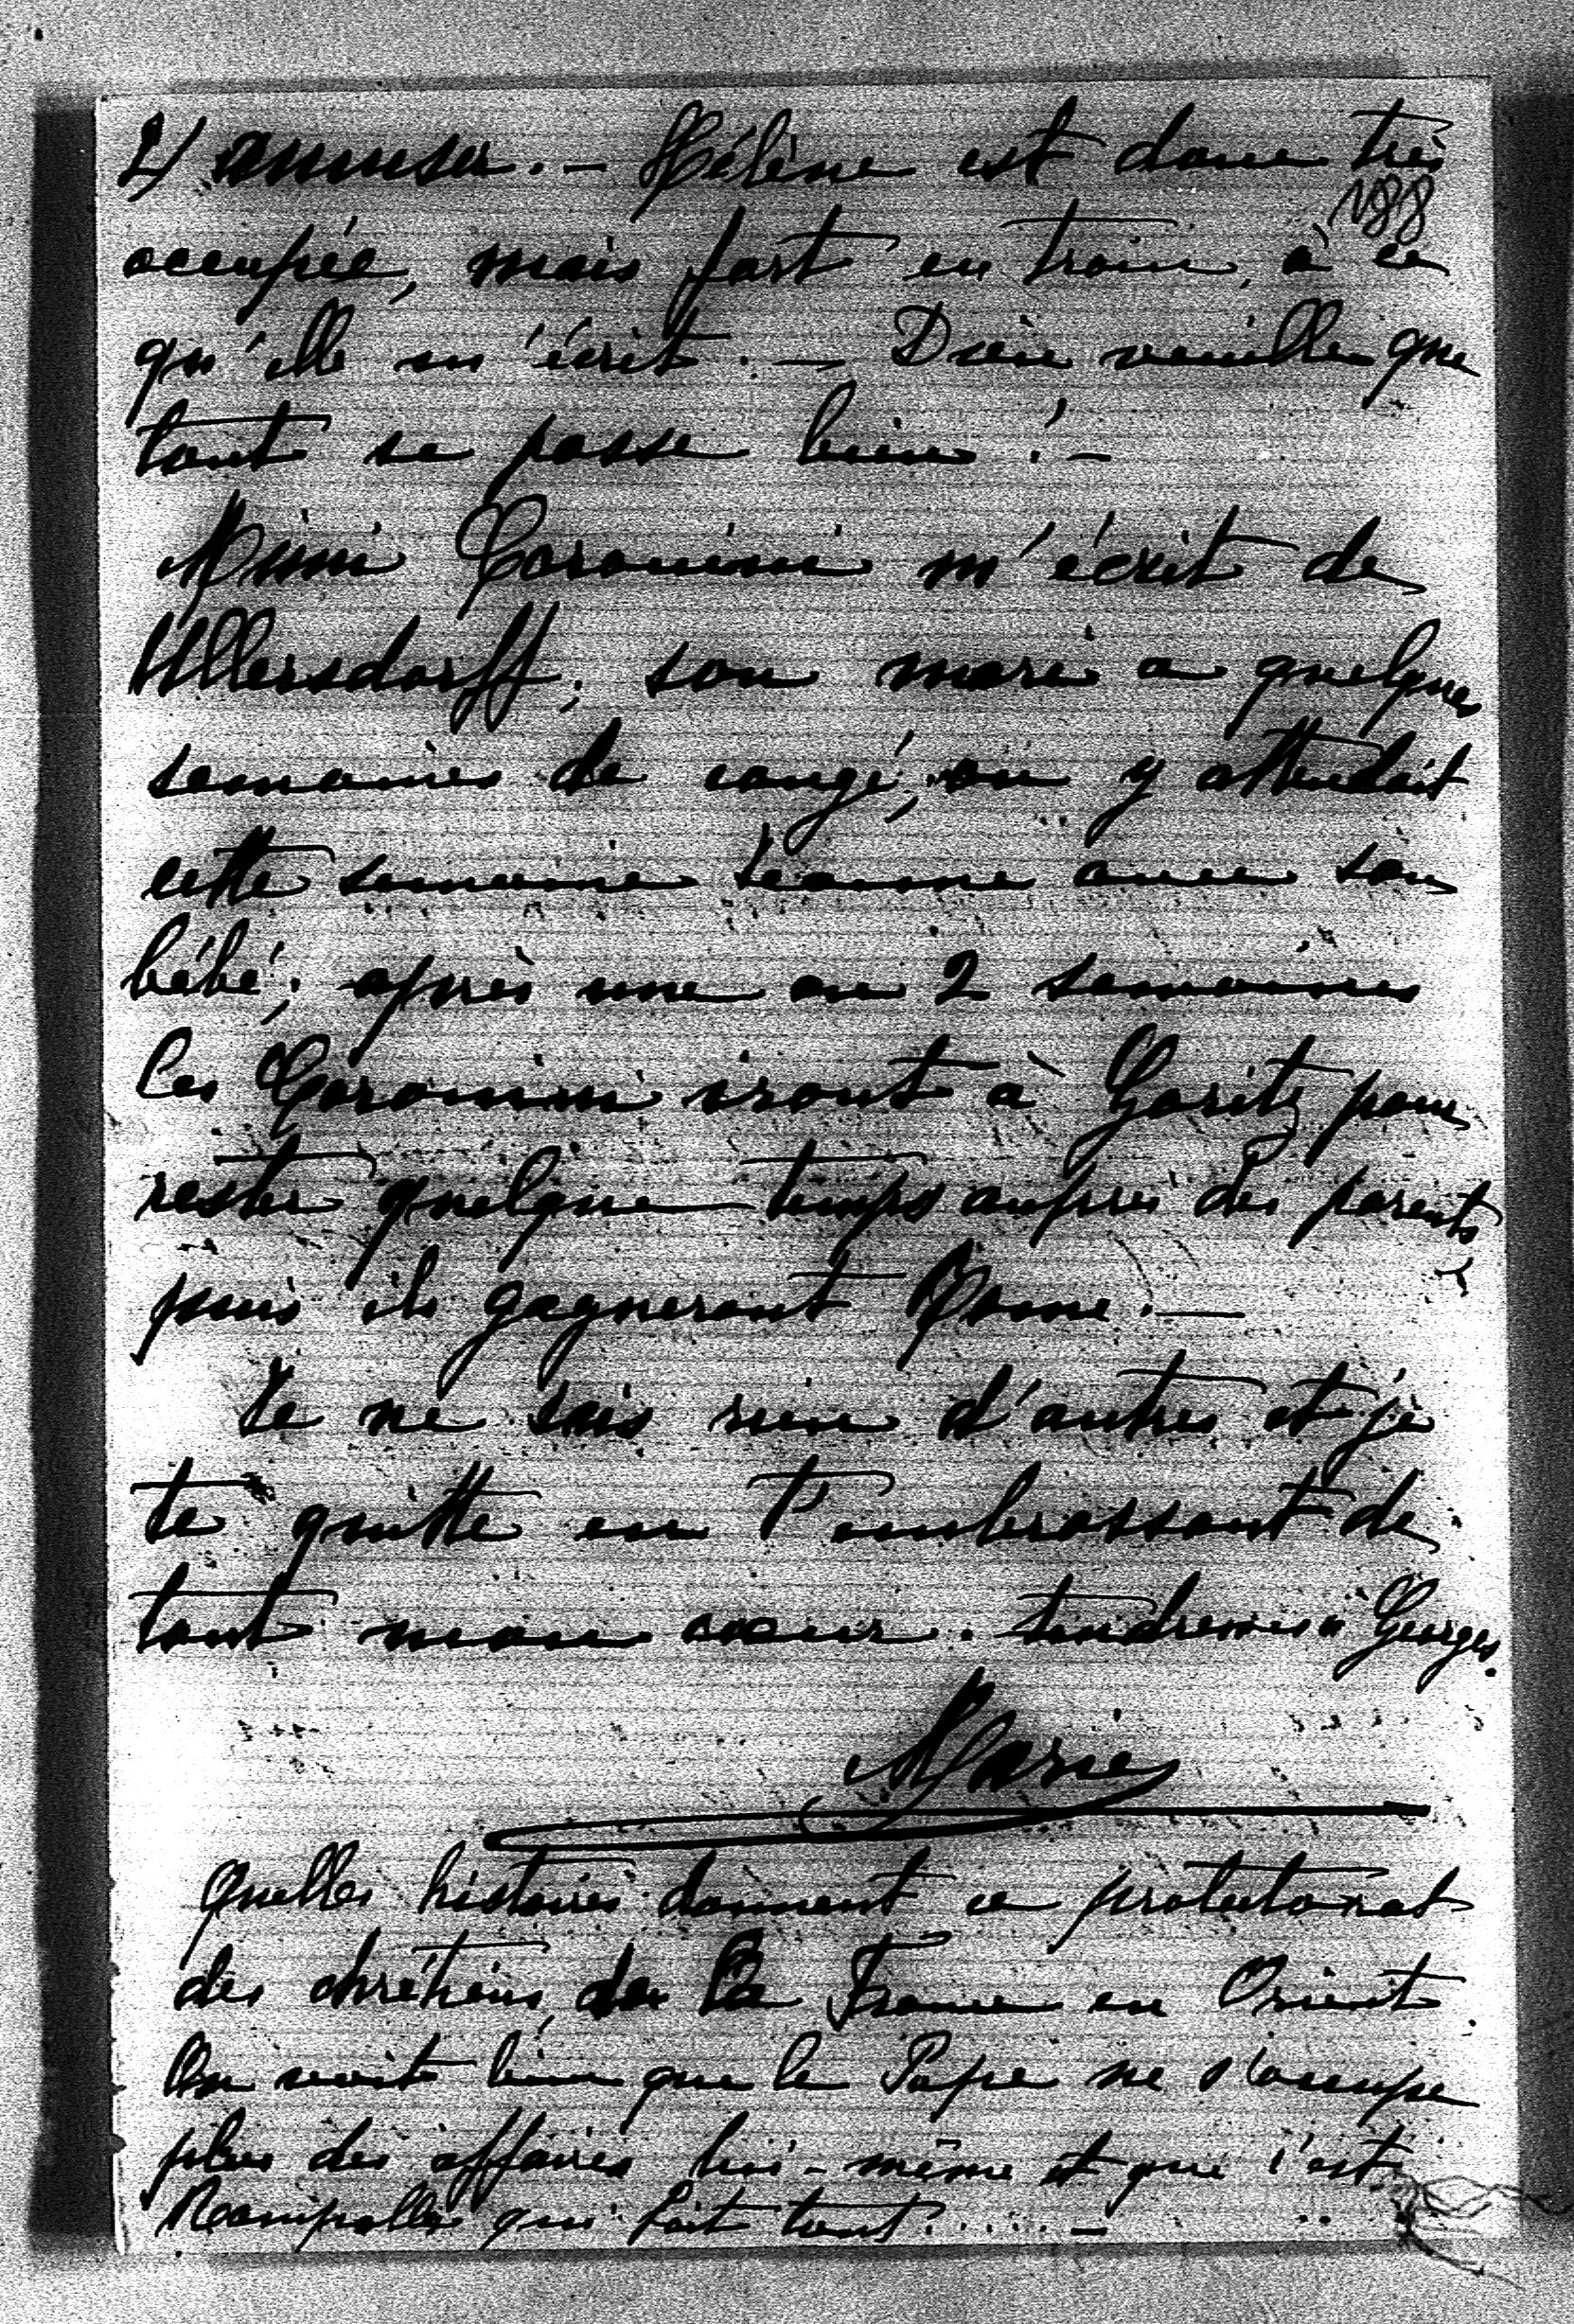 2/ amuser. - Hélène est donc très
188
occupée, mais fort en train, à ce
qu'elle m'écrit. - Dieu veuille que
tout se passe bien! -
Mimi Coronini m'écrit de
Ullersdorff; son mari a quelques
semaines de congé; on y attendait
cette semaine Jeanne avec son
bébé; après une ou 2 semaines
les Coronini iront à Goritz pour
rester quelque temps auprès des parents
puis ils gagneront Rome. -
Je ne sais rien d'autres et je
te quitte en t'embrassant de
tout mon coeur. tendresses à Georges.
Marie
Quelles histoires donnent ce protectorat
des chrétiens, de la France en Orient.
On voit bien que le Pape ne s'occupe
plus des affaires lui-même et que c'est
Rampolla qui fait tout..... -